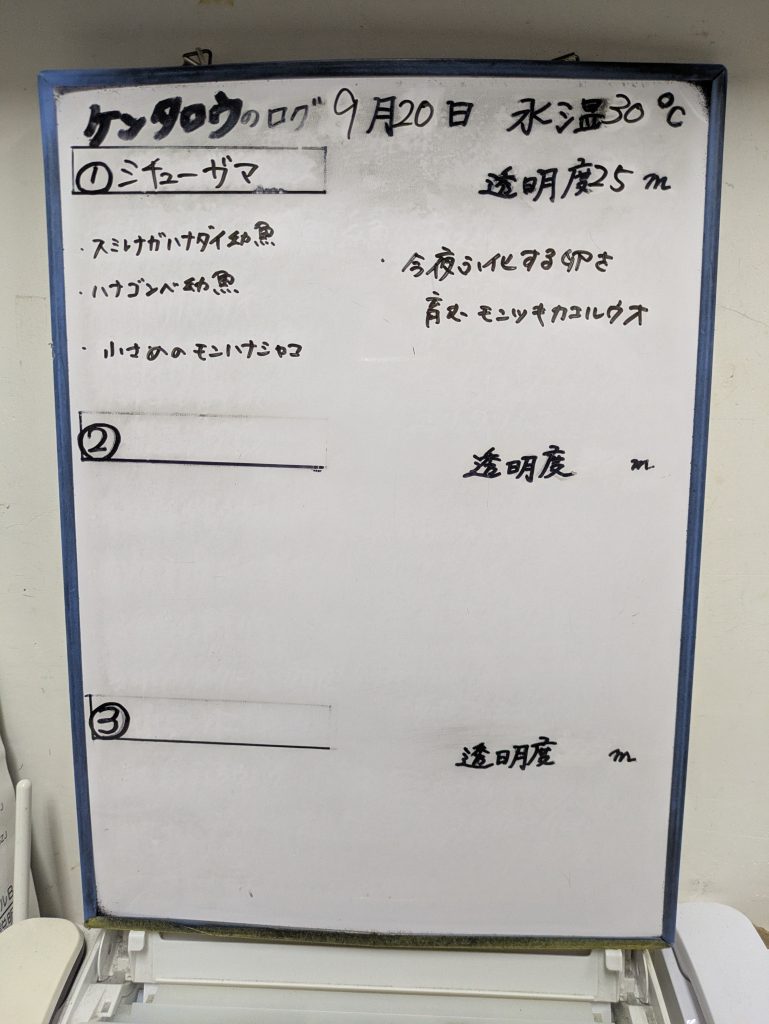 ケンタロウのログ 9月20日 水温30℃
① ミチューザマ
透明度25 m
・スミレナガハナダイ幼魚
・ハナゴンベ幼魚
・小さめのモンハナシャコ
・今夜ふ化する卵を
育む モンツキカエルウオ
②
透明度 m
③
透明度 m